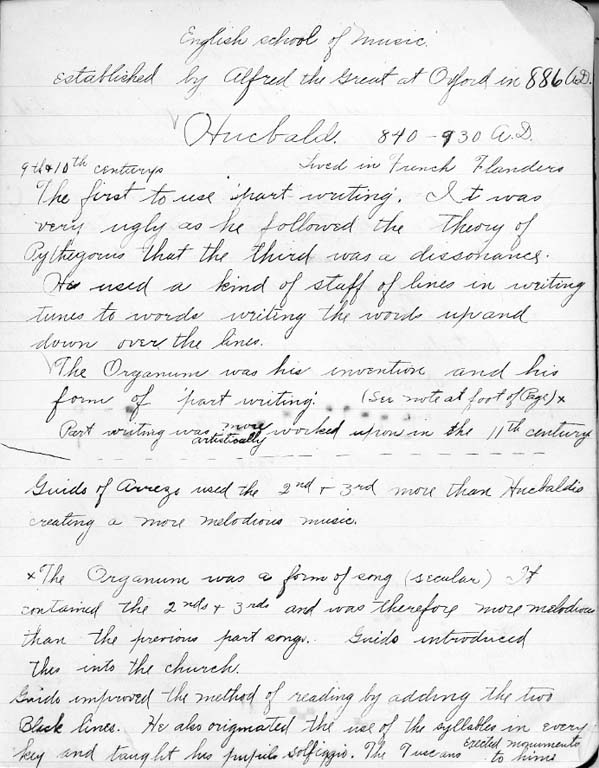 English school of Music.
established by Alfred the Great at Oxford in 886 A.D.
Hucbalds. 840 - 930 A.D.
9th & 10th centurys Lived in French Flanders
The first to use 'part writing'. It was
very ugly as he followed the theory of
Pythegorus that the third was a dissonance.
He used a kind of staff of lines in writing
tunes to words writing the words up and
down over the lines.
The Organum was his invention and his
form of 'part writing'. (See note at foot of Page) x
Part writing was more artistically worked upon in the 11th century
Guido of Arrezo used the 2nd + 3rd more than Hucbaldis
creating a more melodious music.
x The Organum was a form of song (secular) It
contained the 2nds + 3rds and was therefore more melodious
than the previous part songs. Guido introduced
this into the church.
Guido improved the method of reading by adding the two
Black lines. He also originated the use of the syllables in every
key and taught his pupils solfeggio. The Tuscans erected monuments to him.